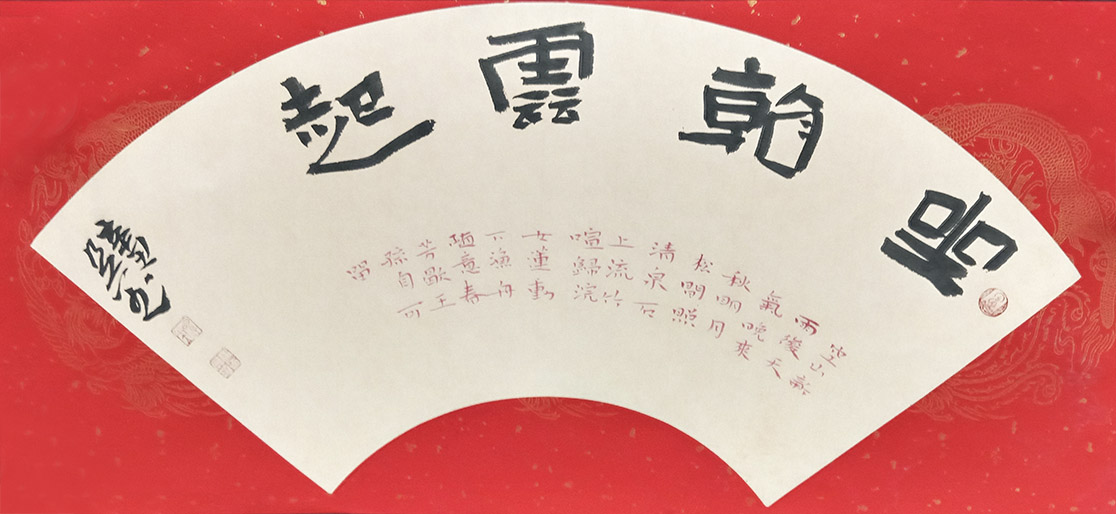 坐看雲起
空山新
雨後天
氣晚來
秋明月
松間照
清泉石
上流竹
喧歸浣
女蓮動
下漁舟
隨意春
芳歇王
孫自可
留